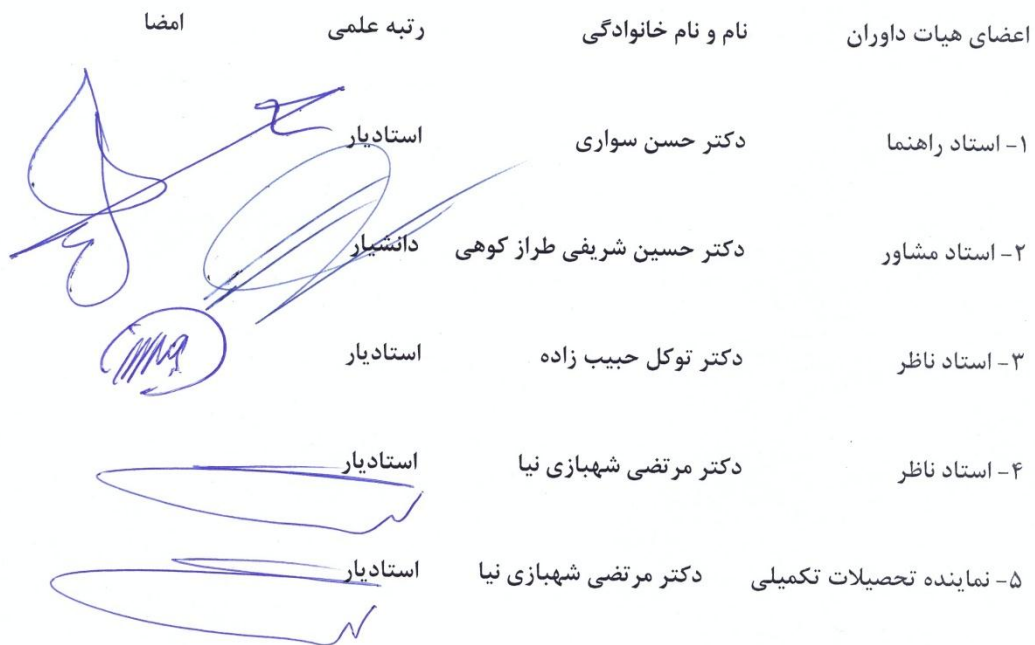 اعضای هیات داوران نام و نام خانوادگی رتبه علمی امضا
۱- استاد راهنما دکتر حسن سواری استادیار
۲- استاد مشاور دکتر حسین شریفی طراز کوهی دانشیار
۳- استاد ناظر دکتر توکل حبیب زاده استادیار
۴- استاد ناظر دکتر مرتضی شهبازی نیا استادیار
۵- نماینده تحصیلات تکمیلی دکتر مرتضی شهبازی نیا استادیار